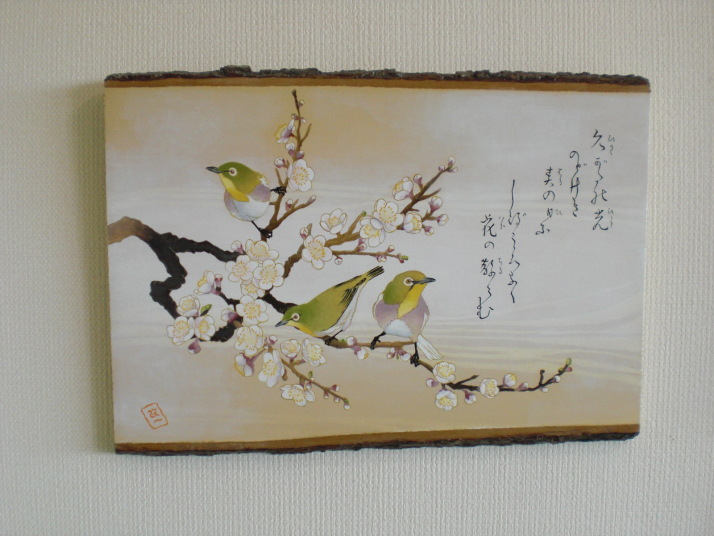 久がたの光
のどけき
春の日に
しづこゝろなく
花の散らむ